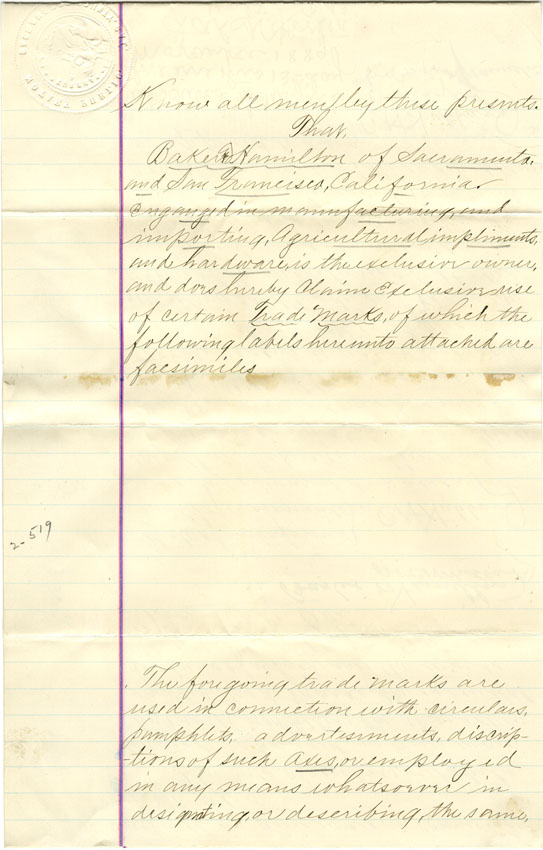 Know all men by these presents.
That
Baker & Hamilton of Sacramento,
and San Francisco, California.
enganged in manufacturing, and
importing, Agricultural impliments,
and hardware, is the exclusive owner,
and does hereby Claim Exclusive use
of certain Trade Marks, of which the
following labels hereunto attached are
facsimiles
2-519
The foregoing trade marks are
used in connection with circulars,
pamphlets, advertisments, discrip-
tions of such Axes, or employed
in any means whatsoever in
designating or describing the same,